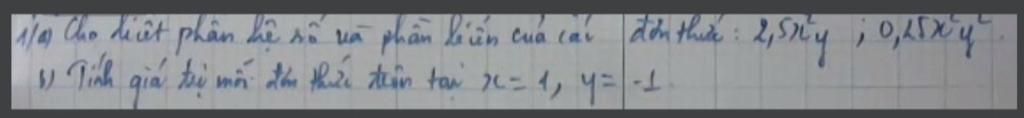 1/a) Cho biết phần hệ số và phần biến của các đơn thức : 2,5x²y ; 0,25x²y².
b) Tính giá trị mỗi đơn thức trên tại x = 1, y = -1.